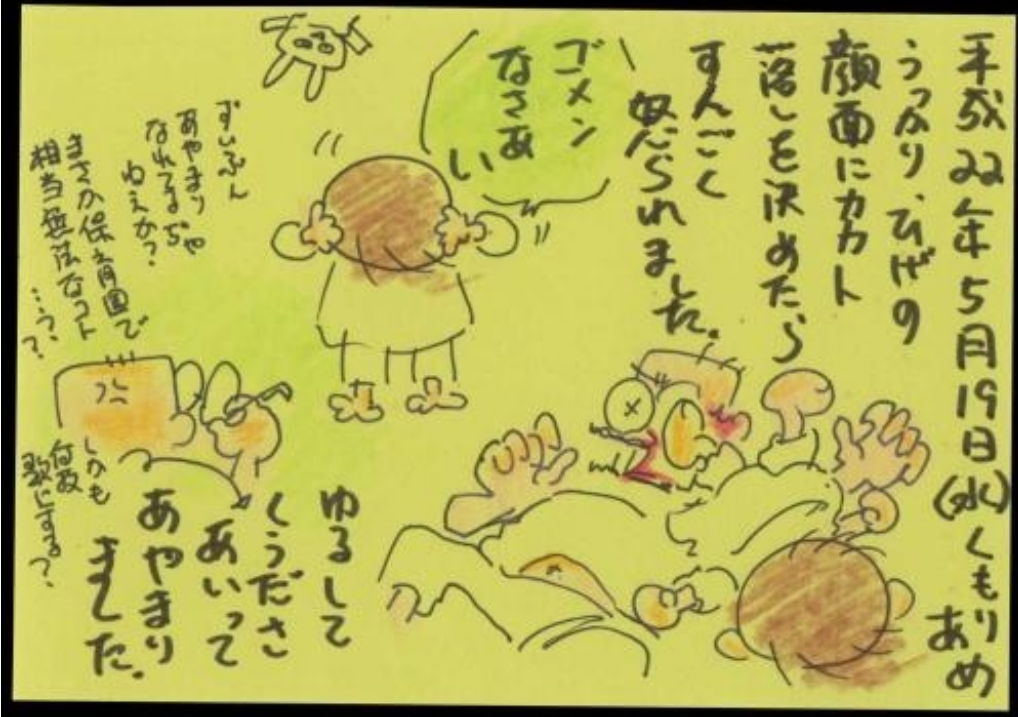 平成22年5月19日(水)くもり
あめ
うっかり、ひげの
顔面にカカト
落しを決めたら
すんごく
怒られました。
ゴメン
なさあ
い
ずいぶん
あやまり
なれてるぢゃ
ねえか?
まさか保育園で
相当無法なコト
…っ??
しかも
何故
歌にする?
ゆるして
くうださ
あいって
あやまり
ました。